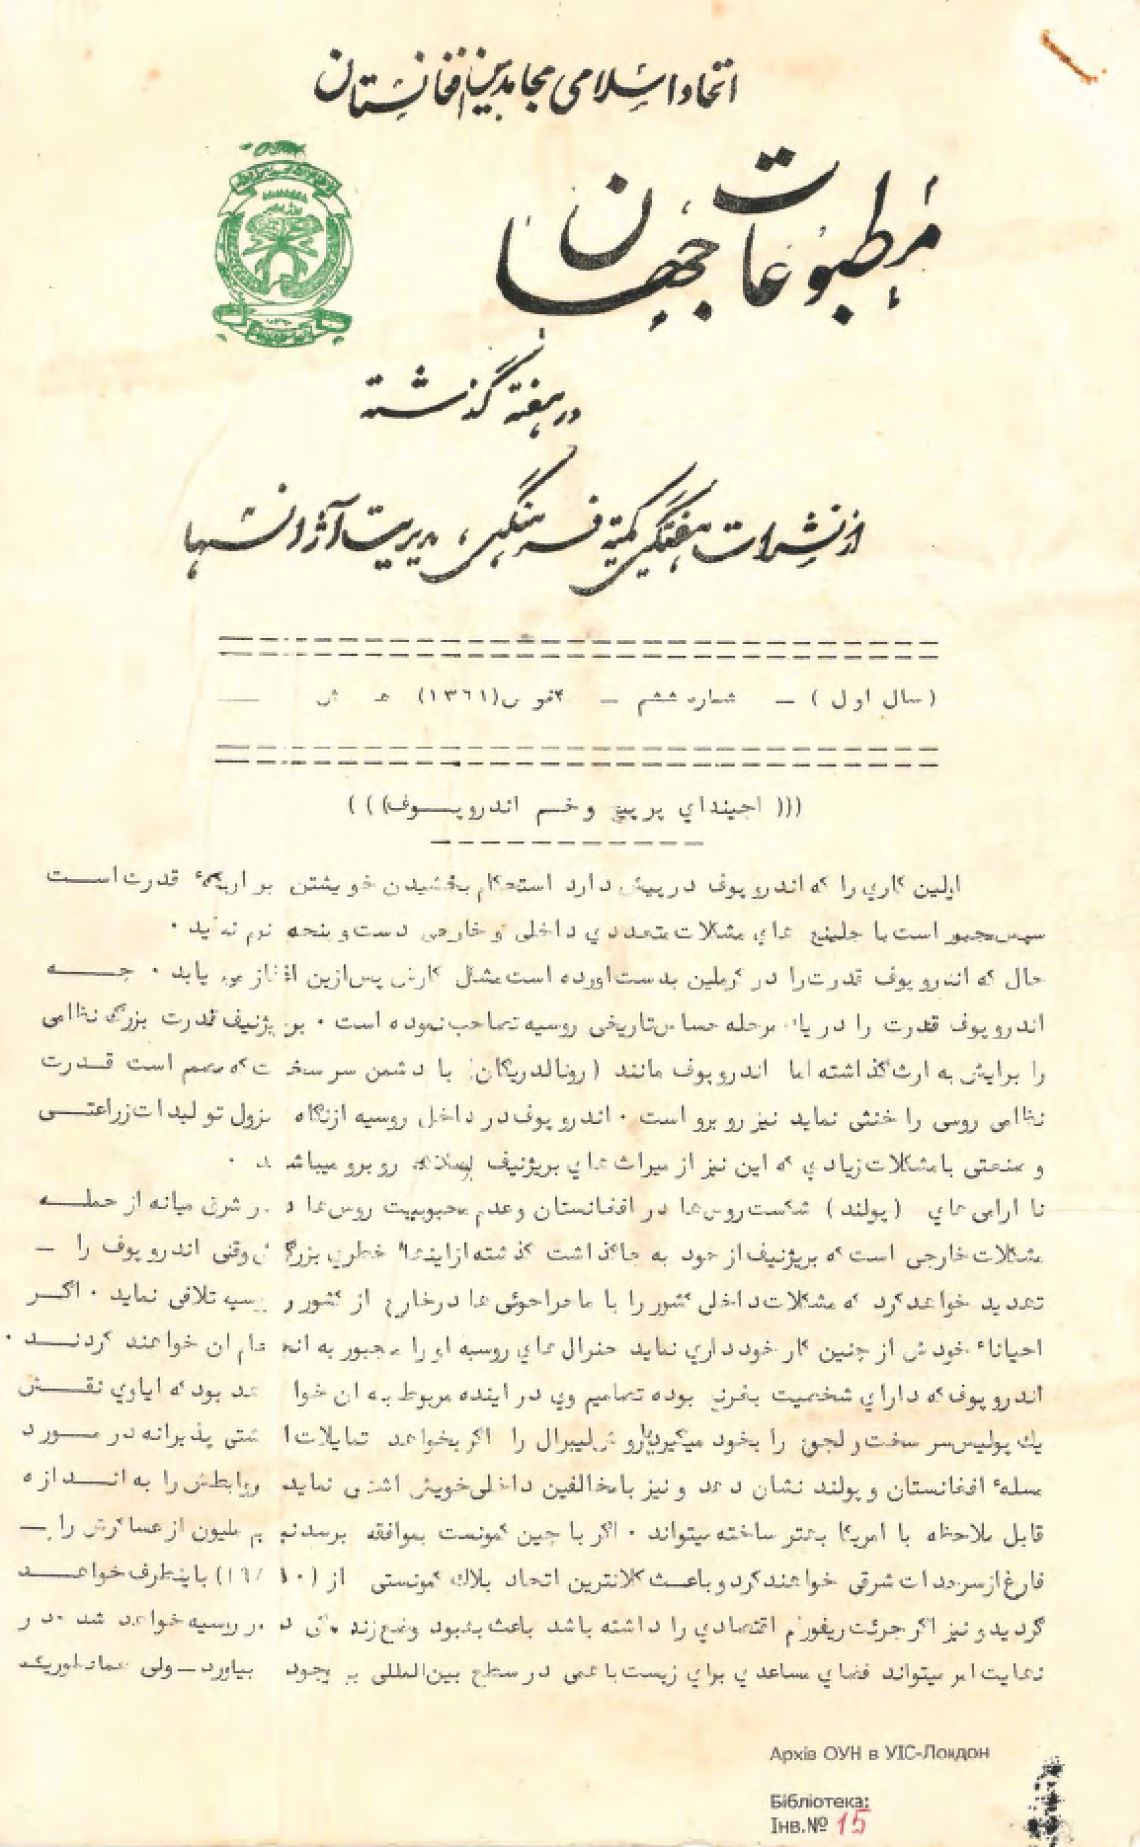 اتحاد اسلامی مجاهدین افغانستان
مطبوعات جهان
در هفته گذشته
از نشرات هفتگی کمیته فرهنگی، مدیریت آژانسها
(سال اول) – شماره ششم – ۴ قوس (۱۳۶۱) هـ ش
((( اجیندای پر پیچ و خم اندروپوف )))
اولین کاری را که اندروپوف در پیش دارد استحکام بخشیدن خویشتن بر اریکهٔ قدرت است
سپس مجبور است با چلینج های مشکلات متعددی داخلی و خارجی دست و پنجه نرم نماید ۰
حال که اندروپوف قدرت را در کرملین بدست اورده است مشکل کارش پس ازین اغاز می یابد ۰ چه
اندروپوف قدرت را در یک مرحله حساس تاریخی روسیه تصاحب نموده است ۰ بریژنیف قدرت بزرگ نظامی
را برایش به ارث گذاشته اما اندروپوف مانند (رونالدریگان) با دشمن سر سخت که مصمم است قدرت
نظامی روسی را خنثی نماید نیز روبرو است ۰ اندروپوف در داخل روسیه ازنگاه نزول تولیدات زراعتی
و صنعتی با مشکلات زیادی که این نیز از میراث های بریژنیف روبرو میباشد ۰
نا ارامی های (پولند) شکست روس ها در افغانستان و عدم محبوبیت روس ها در شرق میانه از جمله
مشکلات خارجی است که بریژنیف از خود به جا گذاشت گذشته از اینها خطری بزرگ وقتی اندروپوف را –
تهدید خواهد کرد که مشکلات داخلی کشور را با ماجراجوئی ها در خارج از کشور روسیه تلافی نماید ۰ اگر
احیاناء خودش از چنین کار خودداری نماید جنرال های روسیه او را مجبور به انجام ان خواهند کردند ۰
اندروپوف که دارای شخصیت بغرنج بوده تصامیم وی در اینده مربوط به ان خواهد بود که ایا وی نقش
یک پولیس سر سخت و لجوج را بخود میگیرد یا روش لیبرال را اگر بخواهد تمایلات اشتی پذیرانه در مورد
مسلهٔ افغانستان و پولند نشان دهد و نیز با مخالفین داخلی خویش اشتی نماید روابطش را به اندازه
قابل ملاحظه با امریکا بهتر ساخته میتواند ۰ اگر با چین کمونست بموافقه برسد نیم ملیون از عساکرش را –
فارغ از سرحدات شرقی خواهند کرد و باعث کلانترین اتحاد بلاک کمونستی از باینطرف خواهد
گردید و نیز اگر جرئت ریفورم اقتصادی را داشته باشد باعث بهبود وضع زندگی در روسیه خواهد شد ۰ در
نهایت امر میتواند فضای مساعدی برای زیست باهمی در سطح بین المللی بوجود بیاورد – ولی همانطوریکه
Архів ОУН в УІС-Лондон
Бібліотека:
Інв.№ 15